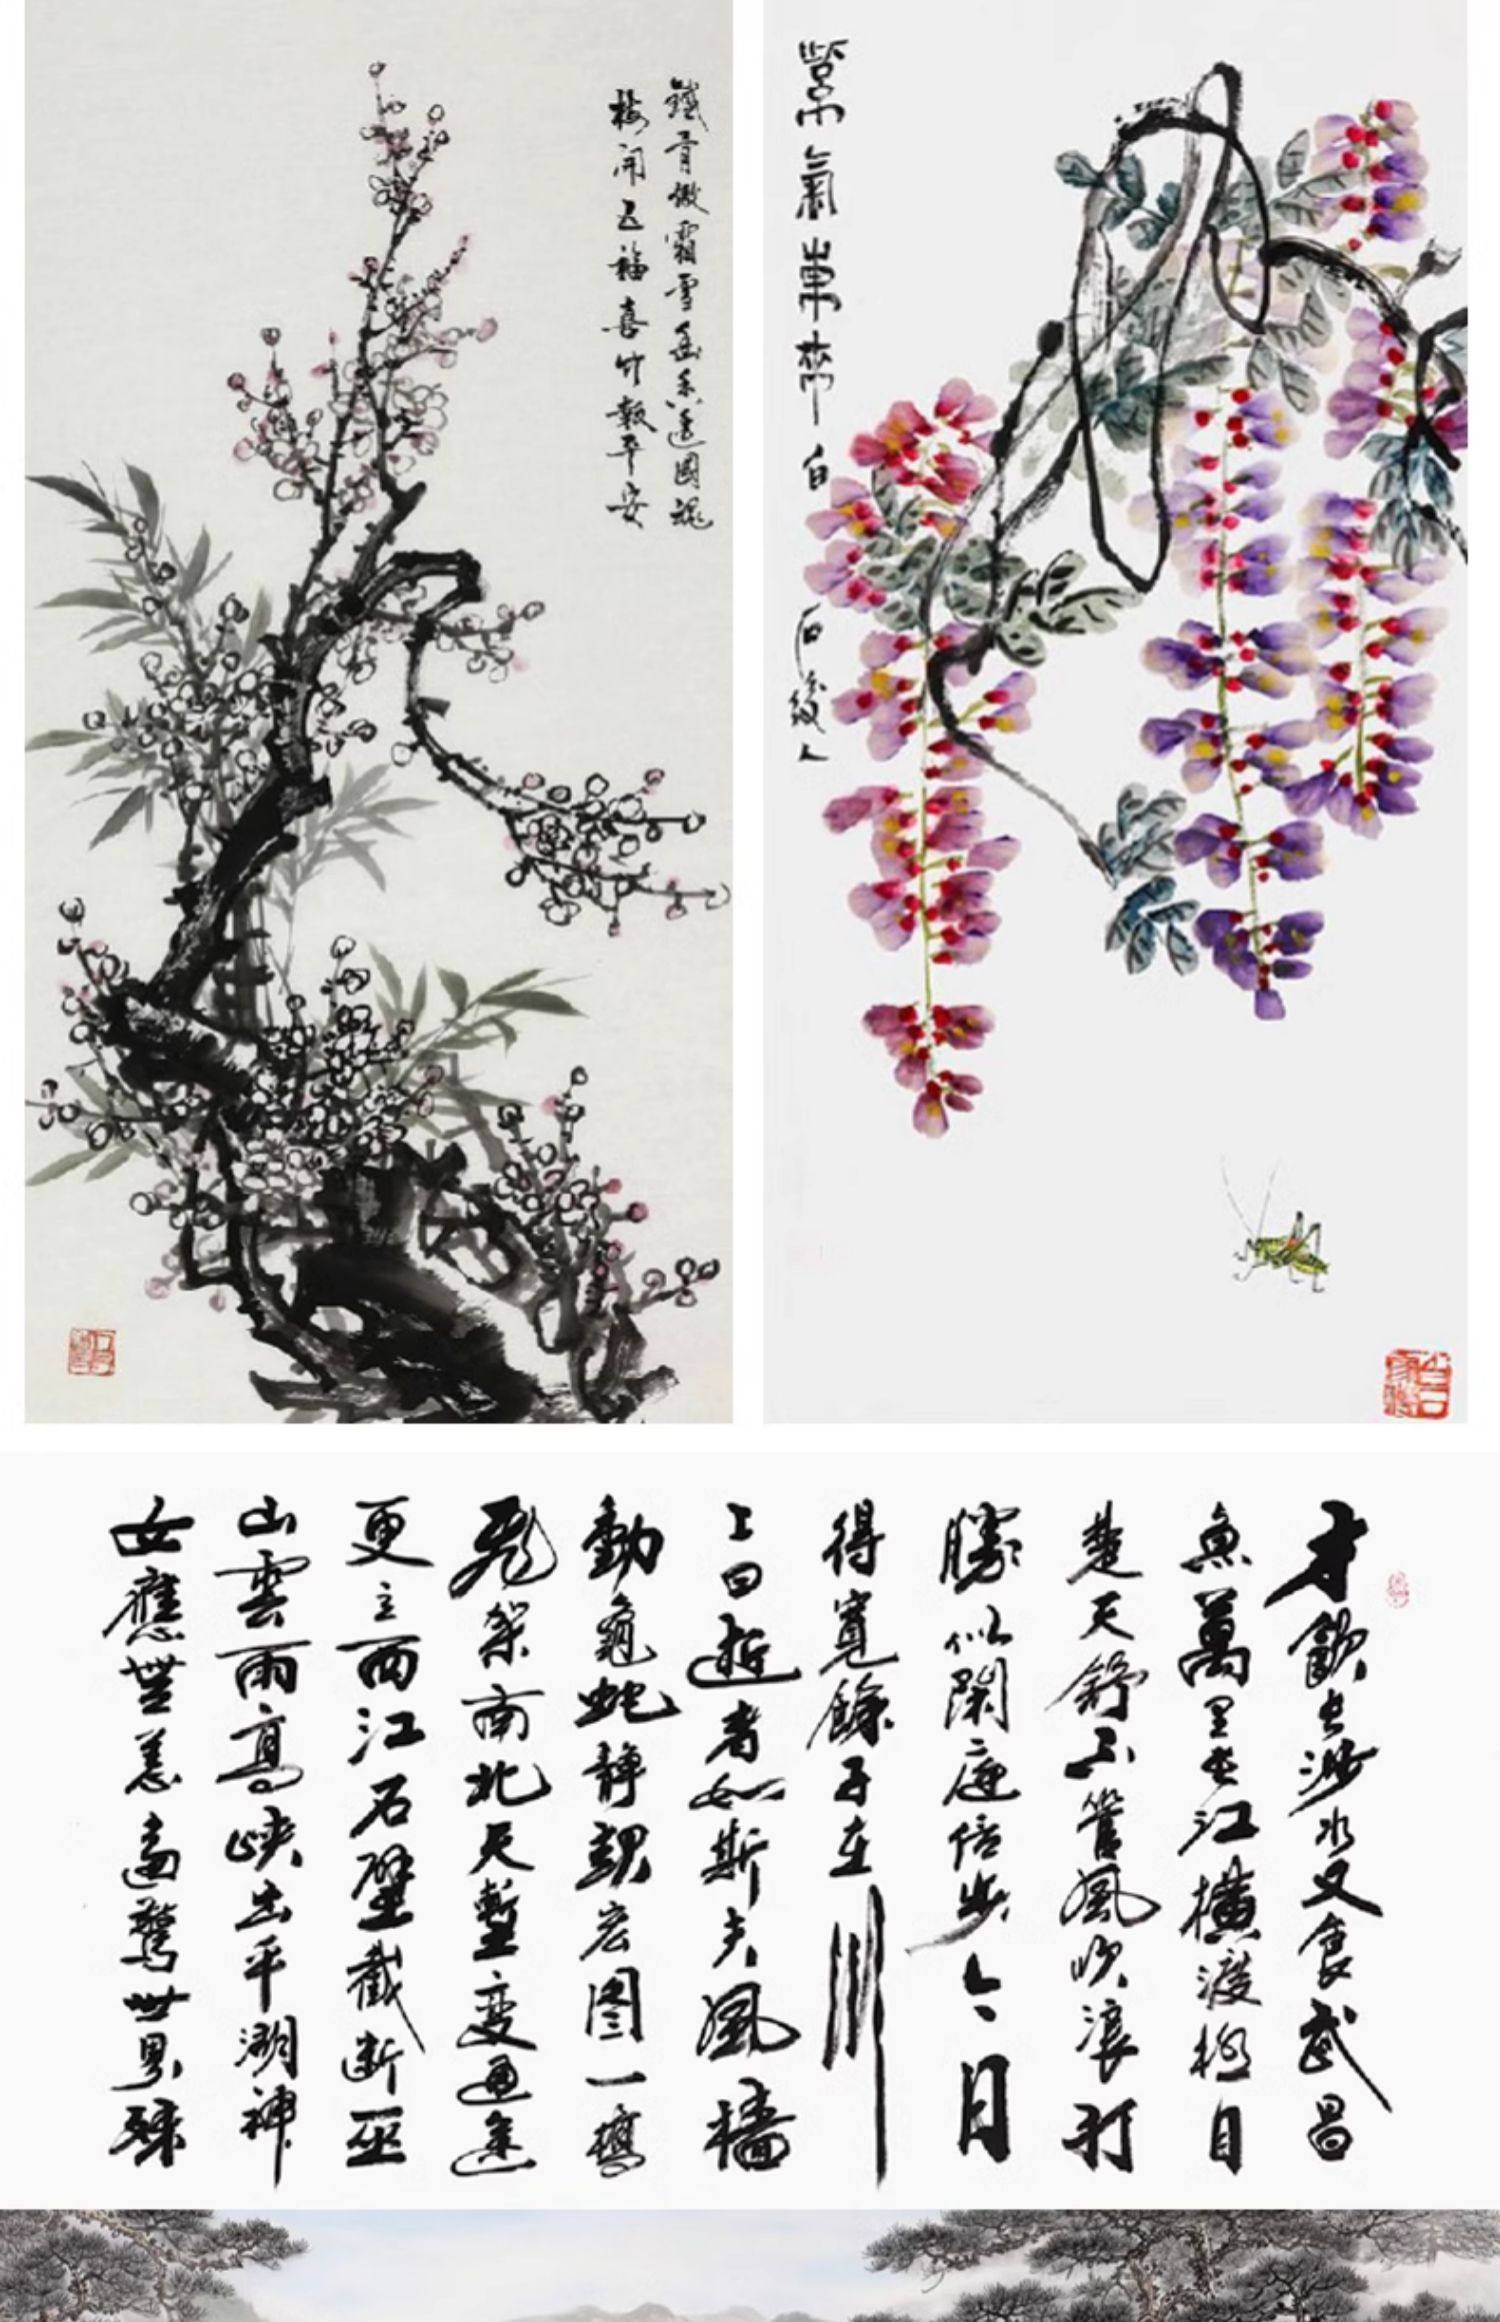 鐵骨傲霜雪幽香透國魂
梅開五福喜竹報平安
紫氣東來 白石後人
才飲長沙水又食武昌
魚萬里長江橫渡極目
楚天舒不管風吹浪打
勝似閑庭信步今日
得寬餘子在川
上曰逝者如斯夫風檣
動龜蛇靜起宏图一橋
飛架南北天塹變通途
更立西江石壁截断巫
山雲雨高峽出平湖神
女應無恙當驚世界殊